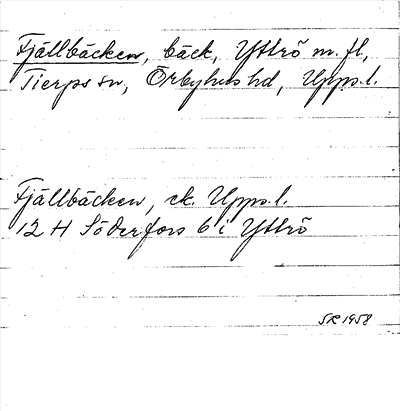 Fjällbäcken, bäck, Yttrö m. fl,
Tierps sn, Örbyhus hd, Upps. l.
Fjällbäcken, ek. Upps. l.
12 H Söderfors 6 i Yttrö
SR 1958